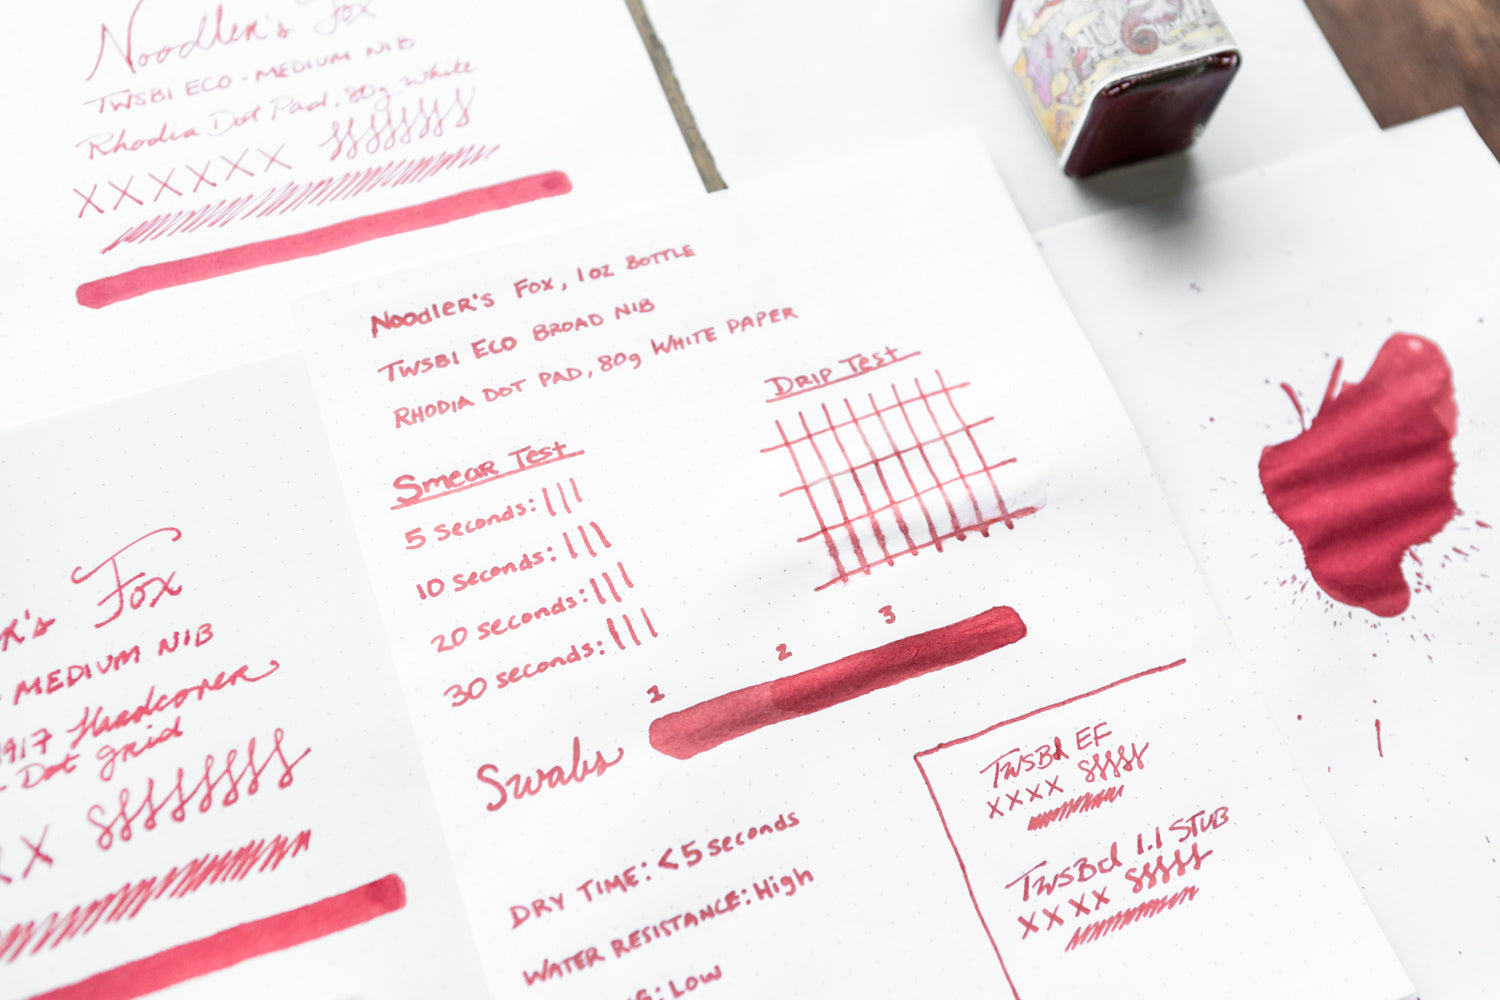 Noodler's Fox
TWSBI ECO - MEDIUM NIB
Rhodia Dot Pad, 80g White
X X X X X X
NOODLER'S FOX, 1OZ BOTTLE
TWSBI ECO BROAD NIB
RHODIA DOT PAD, 80g WHITE PAPER
DRIP TEST
SMEAR TEST
5 seconds: | | |
10 seconds: | | |
20 seconds: | | |
30 seconds: | | |
1 2 3
Swabs
DRY TIME: <5 seconds
WATER RESISTANCE: High
Low
TWSBI EF
XXXX
TWSBI 1.1 STUB
XXXX
Fox
MEDIUM NIB
1917 Hardcover
Dot grid
X X